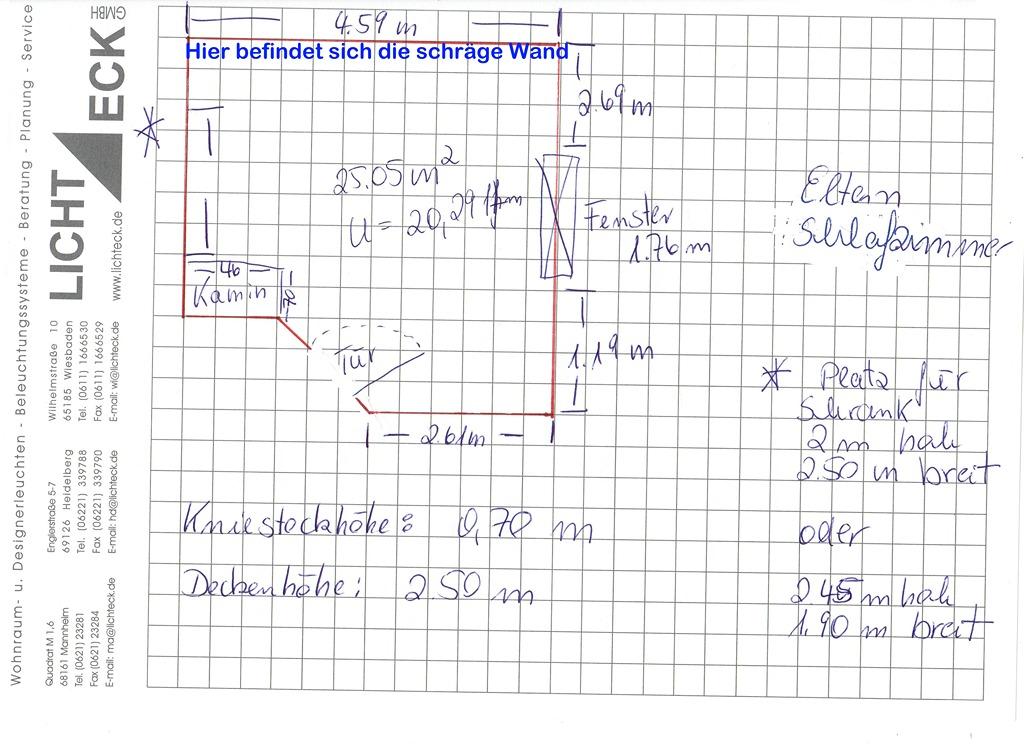 Wohnraum- u. Designerleuchten - Beleuchtungssysteme - Beratung - Planung - Service
LICHT ECK GMBH
www.lichteck.de
Wilhelmstraße 10
65185 Wiesbaden
Tel. (0611) 1666530
Fax (0611) 1666529
E-mail: wi@lichteck.de
Englerstraße 5-7
69126 Heidelberg
Tel. (06221) 339788
Fax (06221) 339790
E-mail: hd@lichteck.de
Quadrat M 1,6
68161 Mannheim
Tel. (0621) 23281
Fax (0621) 23284
E-mail: ma@lichteck.de
4.59 m
Hier befindet sich die schräge Wand
2.69 m
*
25.05 m²
U = 20,29 lfm
Fenster
1.76 m
Eltern
Schlafzimmer
46
Kamin
70
Tür
1.19 m
2.61m
* Platz für
Schrank
2 m hoh
2.50 m breit
oder
2 45 m hoh
1.90 m breit
Kniestockhöhe: 0,70 m
Deckenhöhe: 2.50 m